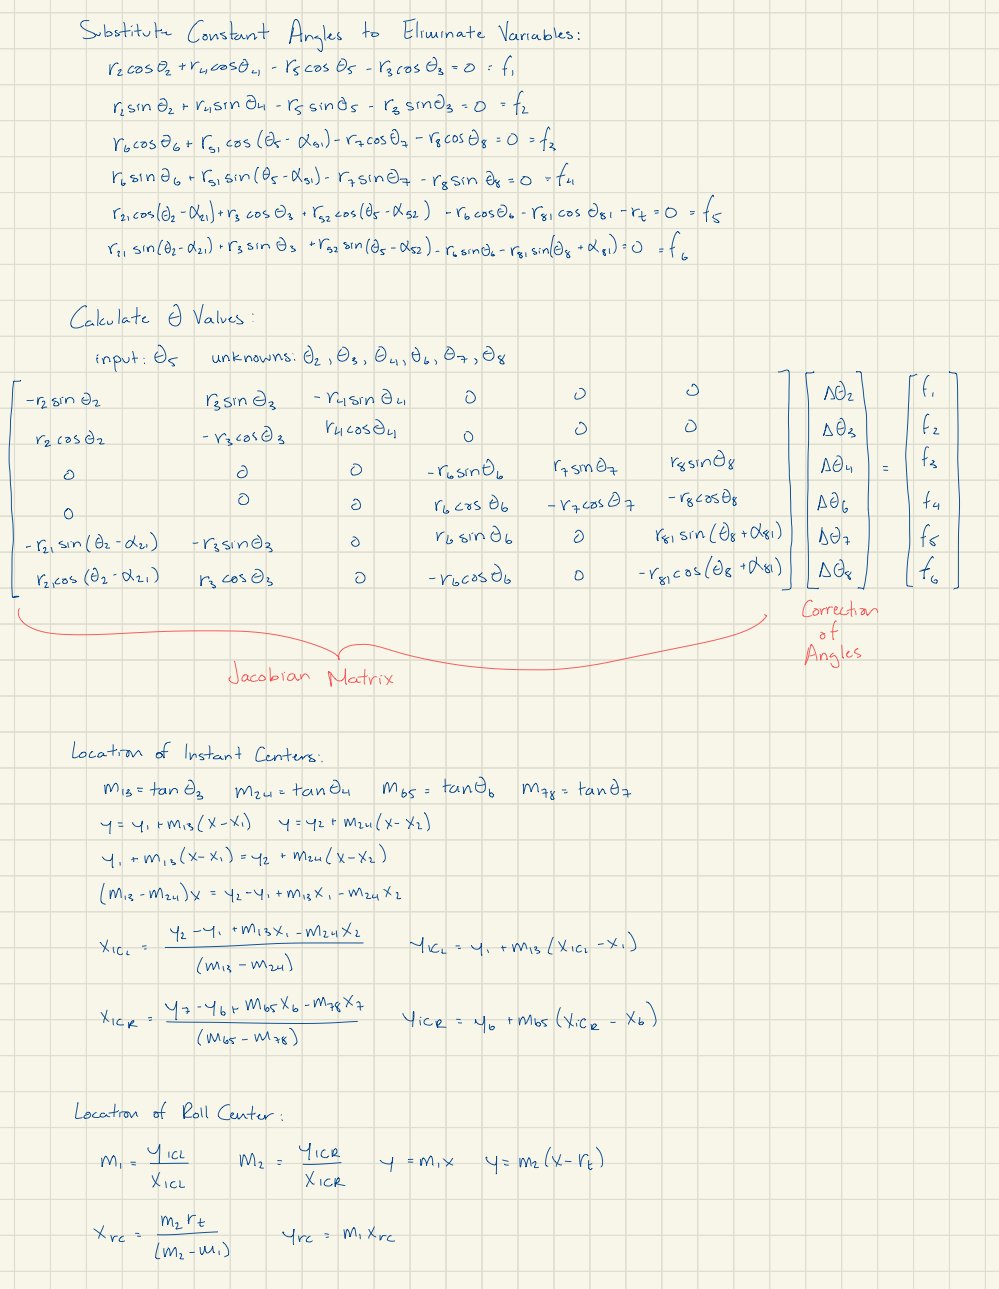 Substitute Constant Angles to Eliminate Variables:
r₂cosθ₂ + r₄cosθ₄ - r₅cosθ₅ - r₃cosθ₃ = 0 = f₁
r₂sinθ₂ + r₄sinθ₄ - r₅sinθ₅ - r₃sinθ₃ = 0 = f₂
r₆cosθ₆ + r₅₁cos(θ₅-α₅₁) - r₇cosθ₇ - r₈cosθ₈ = 0 = f₃
r₆sinθ₆ + r₅₁sin(θ₅-α₅₁) - r₇sinθ₇ - r₈sinθ₈ = 0 = f₄
r₂₁cos(θ₂-α₂₁) + r₃cosθ₃ + r₅₂cos(θ₅-α₅₂) - r₆cosθ₆ - r₈₁cosθ₈₁ - rₜ = 0 = f₅
r₂₁sin(θ₂-α₂₁) + r₃sinθ₃ + r₅₂sin(θ₅-α₅₂) - r₆sinθ₆ - r₈₁sin(θ₈+α₈₁) = 0 = f₆
Calculate θ Values:
input: θ₅ unknowns: θ₂, θ₃, θ₄, θ₆, θ₇, θ₈
-r₂sinθ₂ r₃sinθ₃ -r₄sinθ₄ 0 0 0 Δθ₂ f₁
r₂cosθ₂ -r₃cosθ₃ r₄cosθ₄ 0 0 0 Δθ₃ f₂
0 0 0 -r₆sinθ₆ r₇sinθ₇ r₈sinθ₈ Δθ₄ = f₃
0 0 0 r₆cosθ₆ -r₇cosθ₇ -r₈cosθ₈ Δθ₆ f₄
-r₂₁sin(θ₂-α₂₁) -r₃sinθ₃ 0 r₆sinθ₆ 0 r₈₁sin(θ₈+α₈₁) Δθ₇ f₅
r₂cos(θ₂-α₂₁) r₃cosθ₃ 0 -r₆cosθ₆ 0 -r₈₁cos(θ₈+α₈₁) Δθ₈ f₆
Correction
of
Angles
Jacobian Matrix
Location of Instant Centers:
m₁₃ = tanθ₃ m₂₄ = tanθ₄ m₆₅ = tanθ₆ m₇₈ = tanθ₇
y = y₁ + m₁₃(x-x₁) y = y₂ + m₂₄(x-x₂)
y₁ + m₁₃(x-x₁) = y₂ + m₂₄(x-x₂)
(m₁₃-m₂₄)x = y₂-y₁+m₁₃x₁-m₂₄x₂
x_ICL = (y₂-y₁+m₁₃x₁-m₂₄x₂)/(m₁₃-m₂₄) y_ICL = y₁ + m₁₃(x_ICL-x₁)
x_ICR = (y₇-y₆+m₆₅x₆-m₇₈x₇)/(m₆₅-m₇₈) y_ICR = y₆ + m₆₅(x_ICR-x₆)
Location of Roll Center:
m₁ = y_ICL/x_ICL m₂ = y_ICR/x_ICR y = m₁x y = m₂(x-rₜ)
x_rc = m₂rₜ/(m₂-m₁) y_rc = m₁x_rc